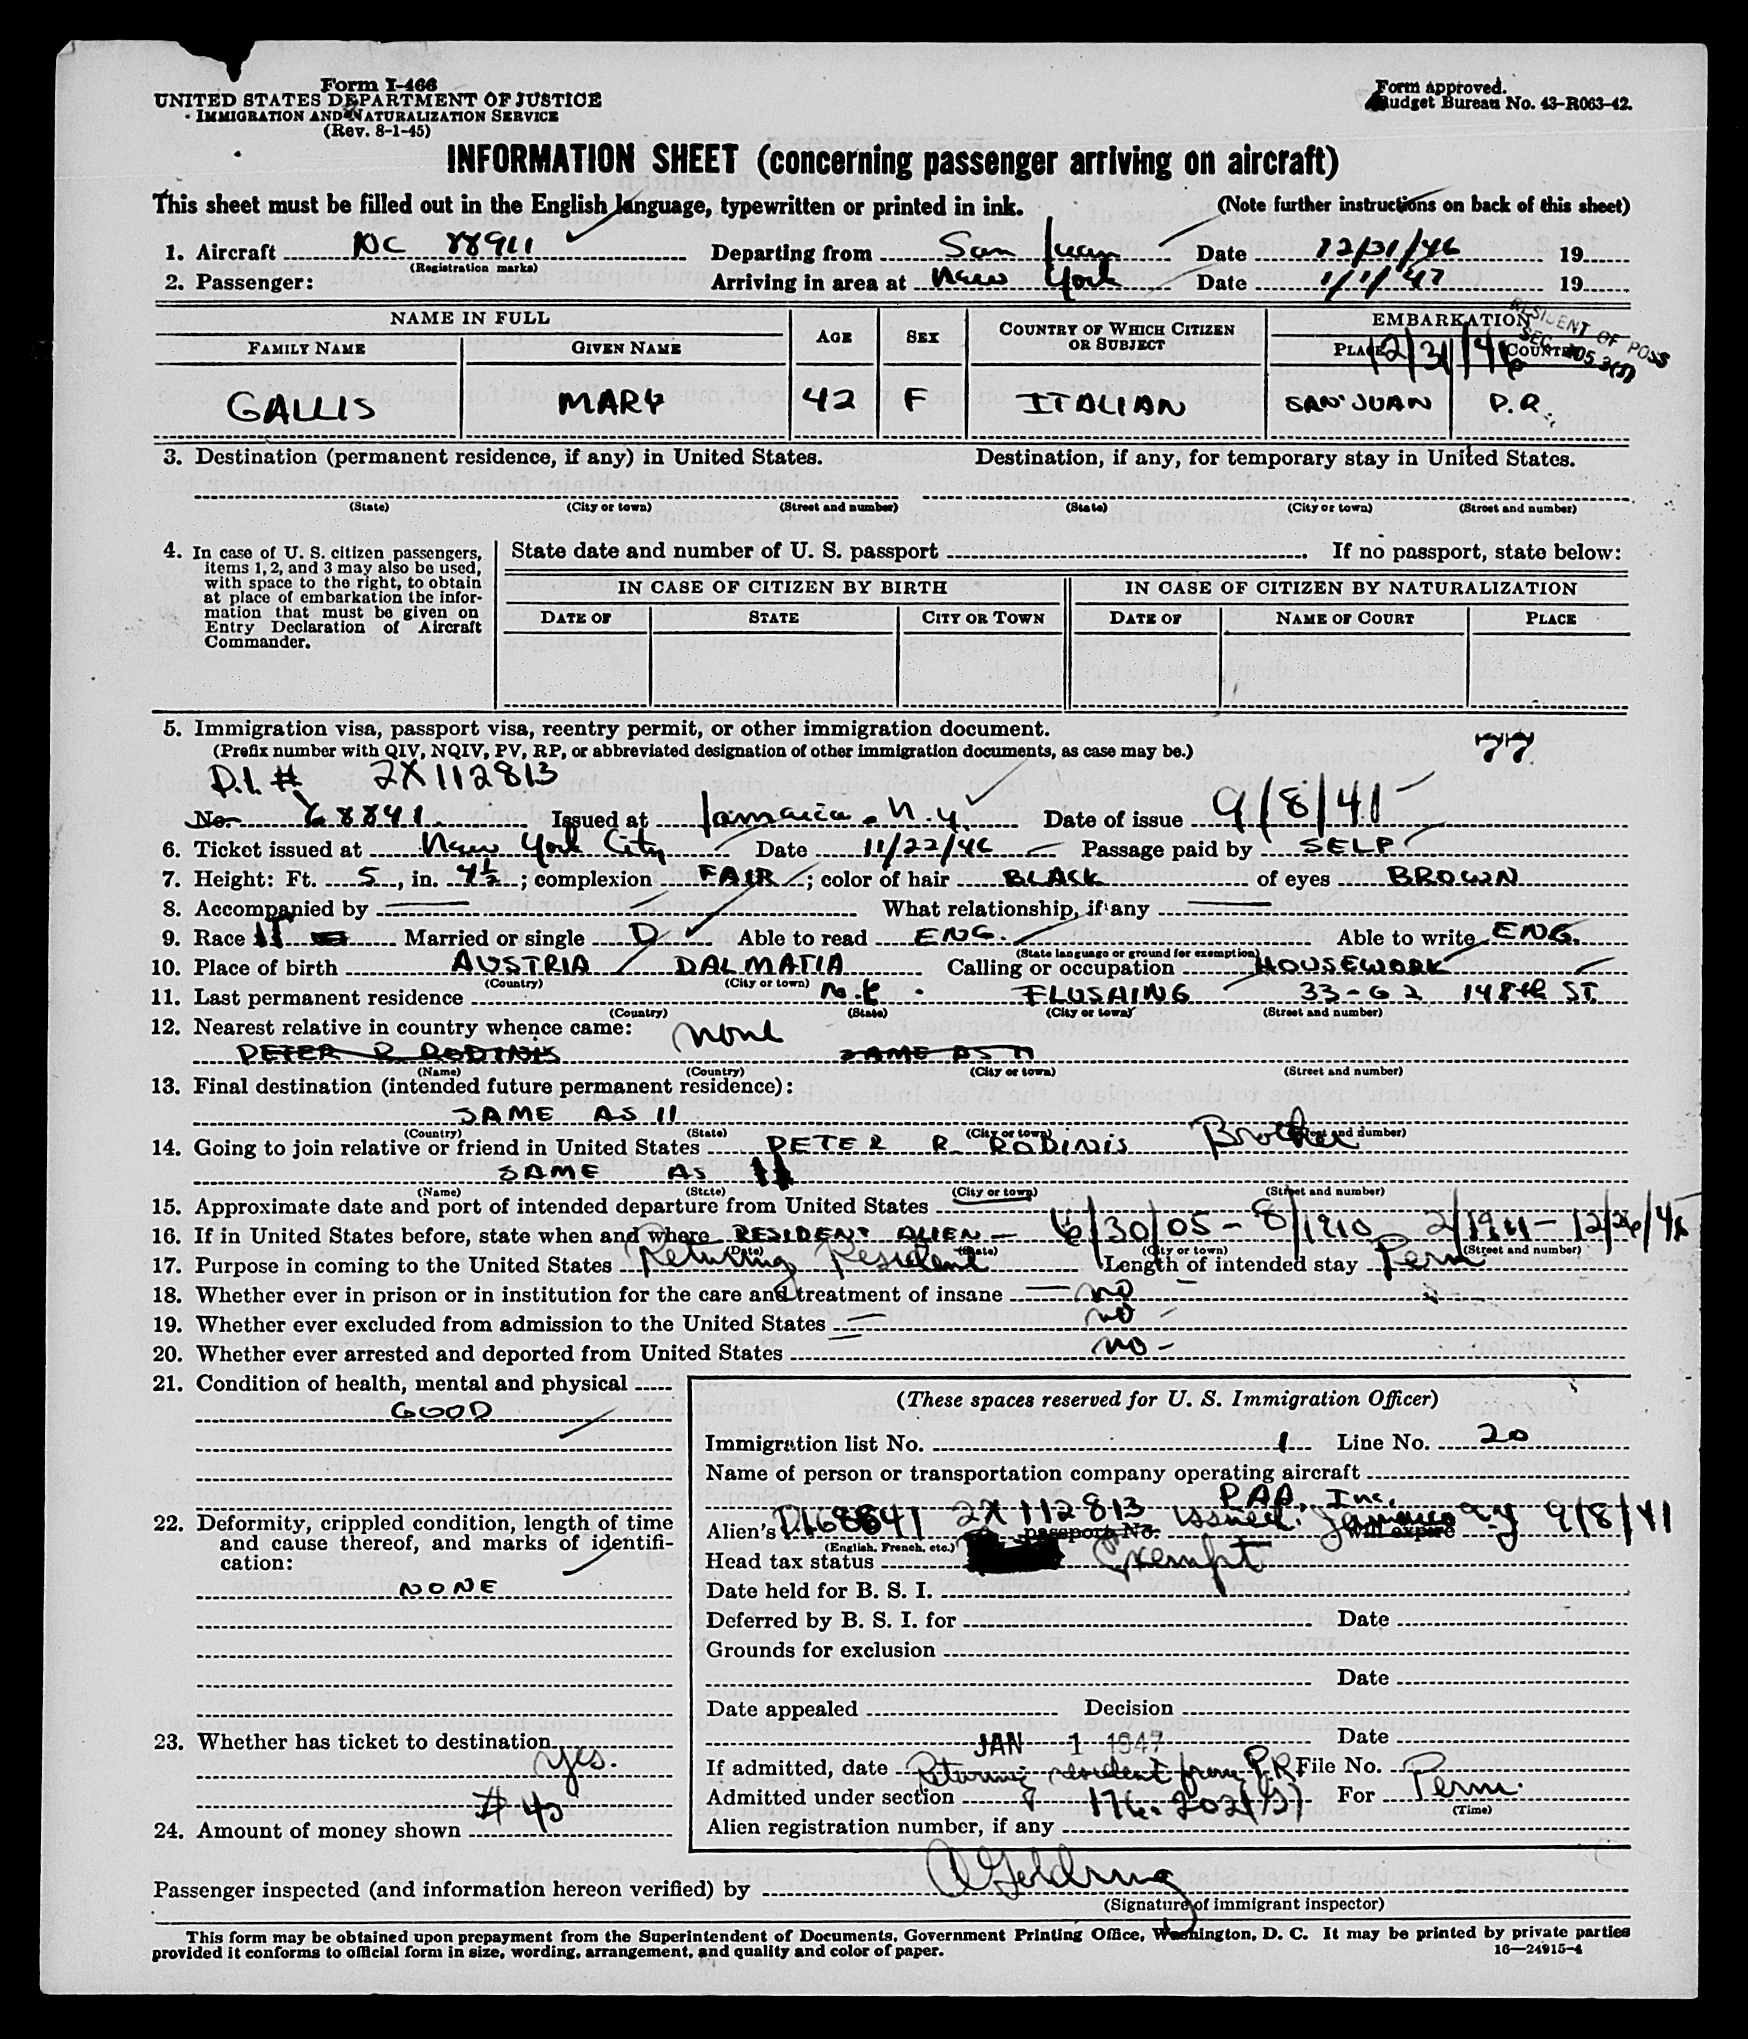 Form I-466
UNITED STATES DEPARTMENT OF JUSTICE
IMMIGRATION AND NATURALIZATION SERVICE
(Rev. 8-1-45)
Form approved.
Budget Bureau No. 43-R063-42.
INFORMATION SHEET (concerning passenger arriving on aircraft)
This sheet must be filled out in the English language, typewritten or printed in ink. (Note further instructions on back of this sheet)
1. Aircraft NC 88911 Departing from San Juan Date 12/31/46 19
(Registration marks)
2. Passenger: Arriving in area at New York Date 1/1/47 19
NAME IN FULL AGE SEX COUNTRY OF WHICH CITIZEN OR SUBJECT EMBARKATION
FAMILY NAME GIVEN NAME PLACE COUNTRY
RESIDENT OF POSS
12/31/46
GALLIS MARY 42 F ITALIAN SAN JUAN P.R.
3. Destination (permanent residence, if any) in United States. Destination, if any, for temporary stay in United States.
(State) (City or town) (Street and number) (State) (City or town) (Street and number)
4. In case of U. S. citizen passengers, items 1, 2, and 3 may also be used, with space to the right, to obtain at place of embarkation the information that must be given on Entry Declaration of Aircraft Commander.
State date and number of U. S. passport . If no passport, state below:
IN CASE OF CITIZEN BY BIRTH IN CASE OF CITIZEN BY NATURALIZATION
DATE OF STATE CITY OR TOWN DATE OF NAME OF COURT PLACE
5. Immigration visa, passport visa, reentry permit, or other immigration document.
(Prefix number with QIV, NQIV, PV, RP, or abbreviated designation of other immigration documents, as case may be.) 77
D.I. # 2X112813
No. 68841 Issued at Jamaica, N.Y. Date of issue 9/8/41
6. Ticket issued at New York City Date 11/22/46 Passage paid by SELF
7. Height: Ft. 5, in. 4½; complexion FAIR; color of hair BLACK of eyes BROWN
8. Accompanied by What relationship, if any
9. Race IT Married or single D Able to read ENG. Able to write ENG.
(State language or ground for exemption)
10. Place of birth AUSTRIA DALMATIA Calling or occupation HOUSEWORK
(Country) (City or town)
11. Last permanent residence N.Y. FLUSHING 33-62 148th ST.
(Country) (State) (City or town) (Street and number)
12. Nearest relative in country whence came: None
PETER R. RODINIS SAME AS 11
(Name) (Country) (City or town) (Street and number)
13. Final destination (intended future permanent residence):
SAME AS 11
(Country) (State) (City or town) (Street and number)
14. Going to join relative or friend in United States PETER R. RODINIS Brother
SAME AS 11
(Name) (State) (City or town) (Street and number)
15. Approximate date and port of intended departure from United States
16. If in United States before, state when and where RESIDENT ALIEN - 6/30/05 - 8/1910 2/1911 - 12/26/46
(Date) (State) (City or town) (Street and number)
17. Purpose in coming to the United States Returning Resident Length of intended stay Perm
18. Whether ever in prison or in institution for the care and treatment of insane no
19. Whether ever excluded from admission to the United States no
20. Whether ever arrested and deported from United States no
21. Condition of health, mental and physical
GOOD
22. Deformity, crippled condition, length of time and cause thereof, and marks of identification:
NONE
23. Whether has ticket to destination
yes.
24. Amount of money shown $40
(These spaces reserved for U. S. Immigration Officer)
Immigration list No. 1 Line No. 20
Name of person or transportation company operating aircraft
PAA, Inc.
Alien's DI 68841 2X 112813 passport No. issued Jamaica NY will expire 9/8/41
(English, French, etc.)
Head tax status Exempt
Date held for B. S. I.
Deferred by B. S. I. for Date
Grounds for exclusion
Date
Date appealed Decision
JAN 1 1947 Date
If admitted, date Returning resident from P.R. File No.
Admitted under section 176.202(D) For Perm.
(Time)
Alien registration number, if any
Passenger inspected (and information hereon verified) by
(Signature of immigrant inspector)
This form may be obtained upon prepayment from the Superintendent of Documents, Government Printing Office, Washington, D. C. It may be printed by private parties
provided it conforms to official form in size, wording, arrangement, and quality and color of paper. 16—24915-4